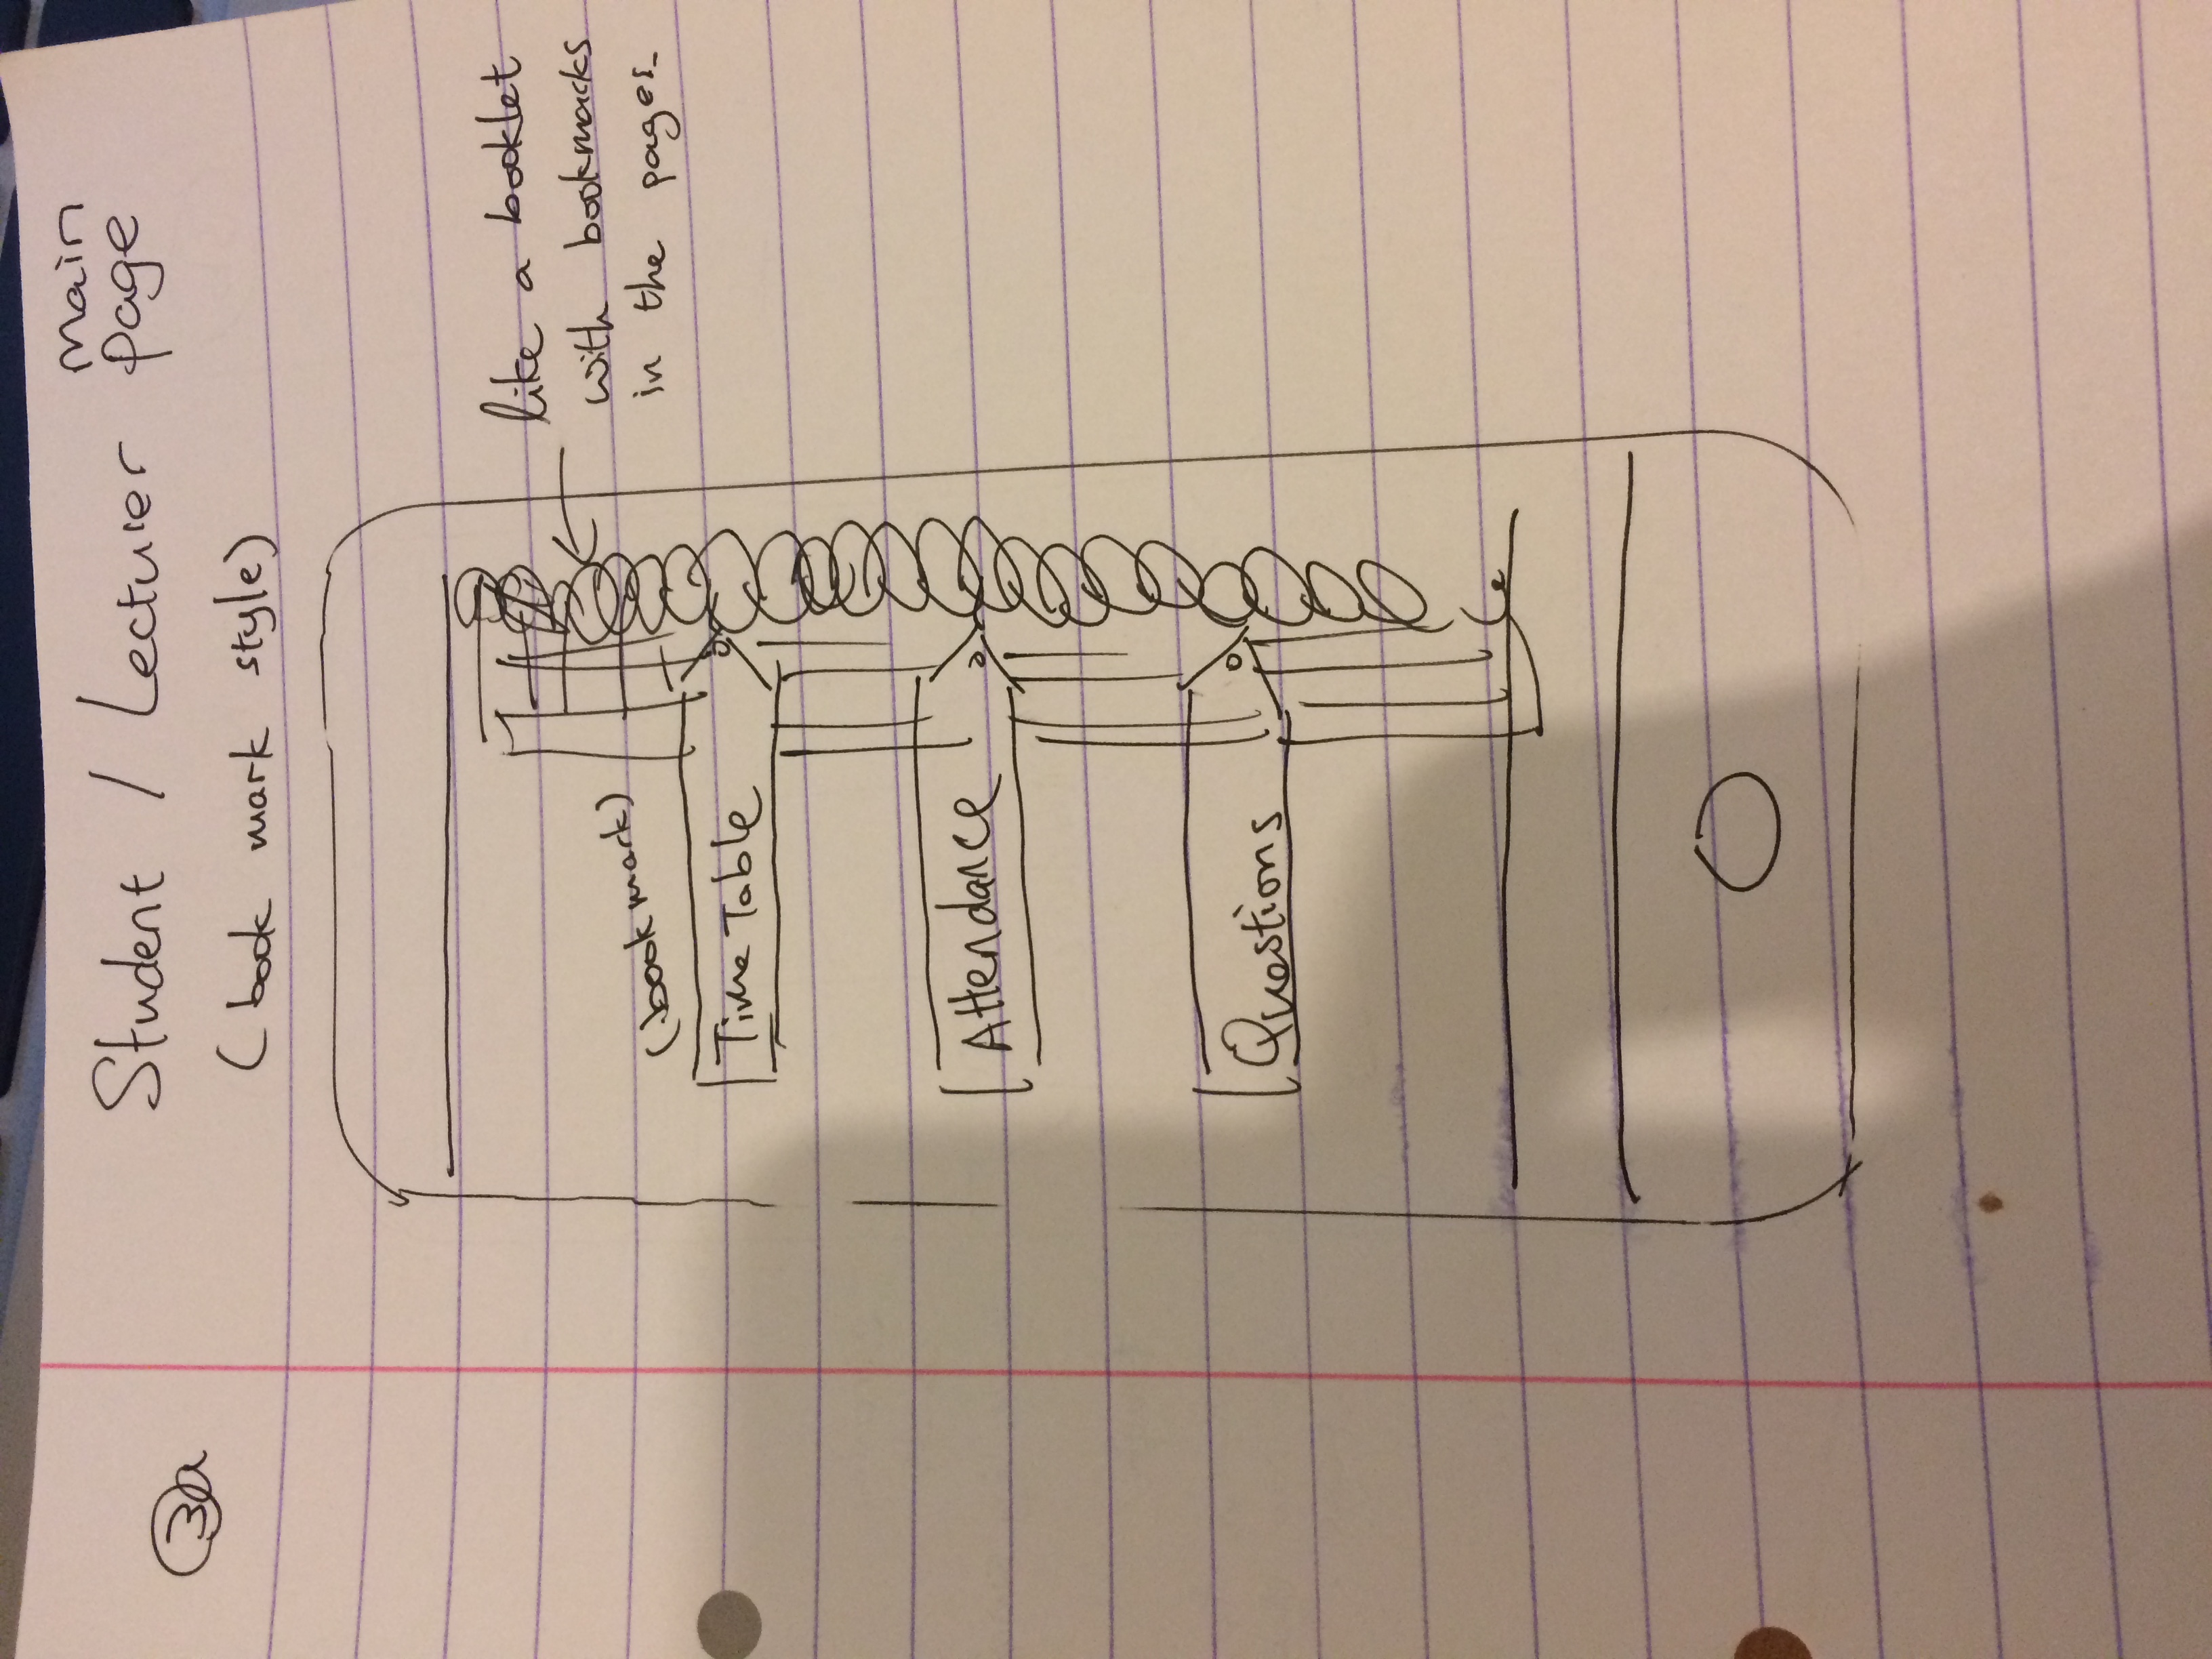 3a
Student / Lecturer main page
(book mark style)
like a booklet
with bookmarks
in the pages.
(bookmark)
Time Table
Attendance
Questions